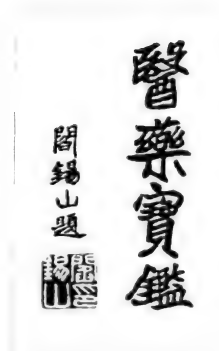 醫藥寶鑑
閻錫山題
閻錫山印